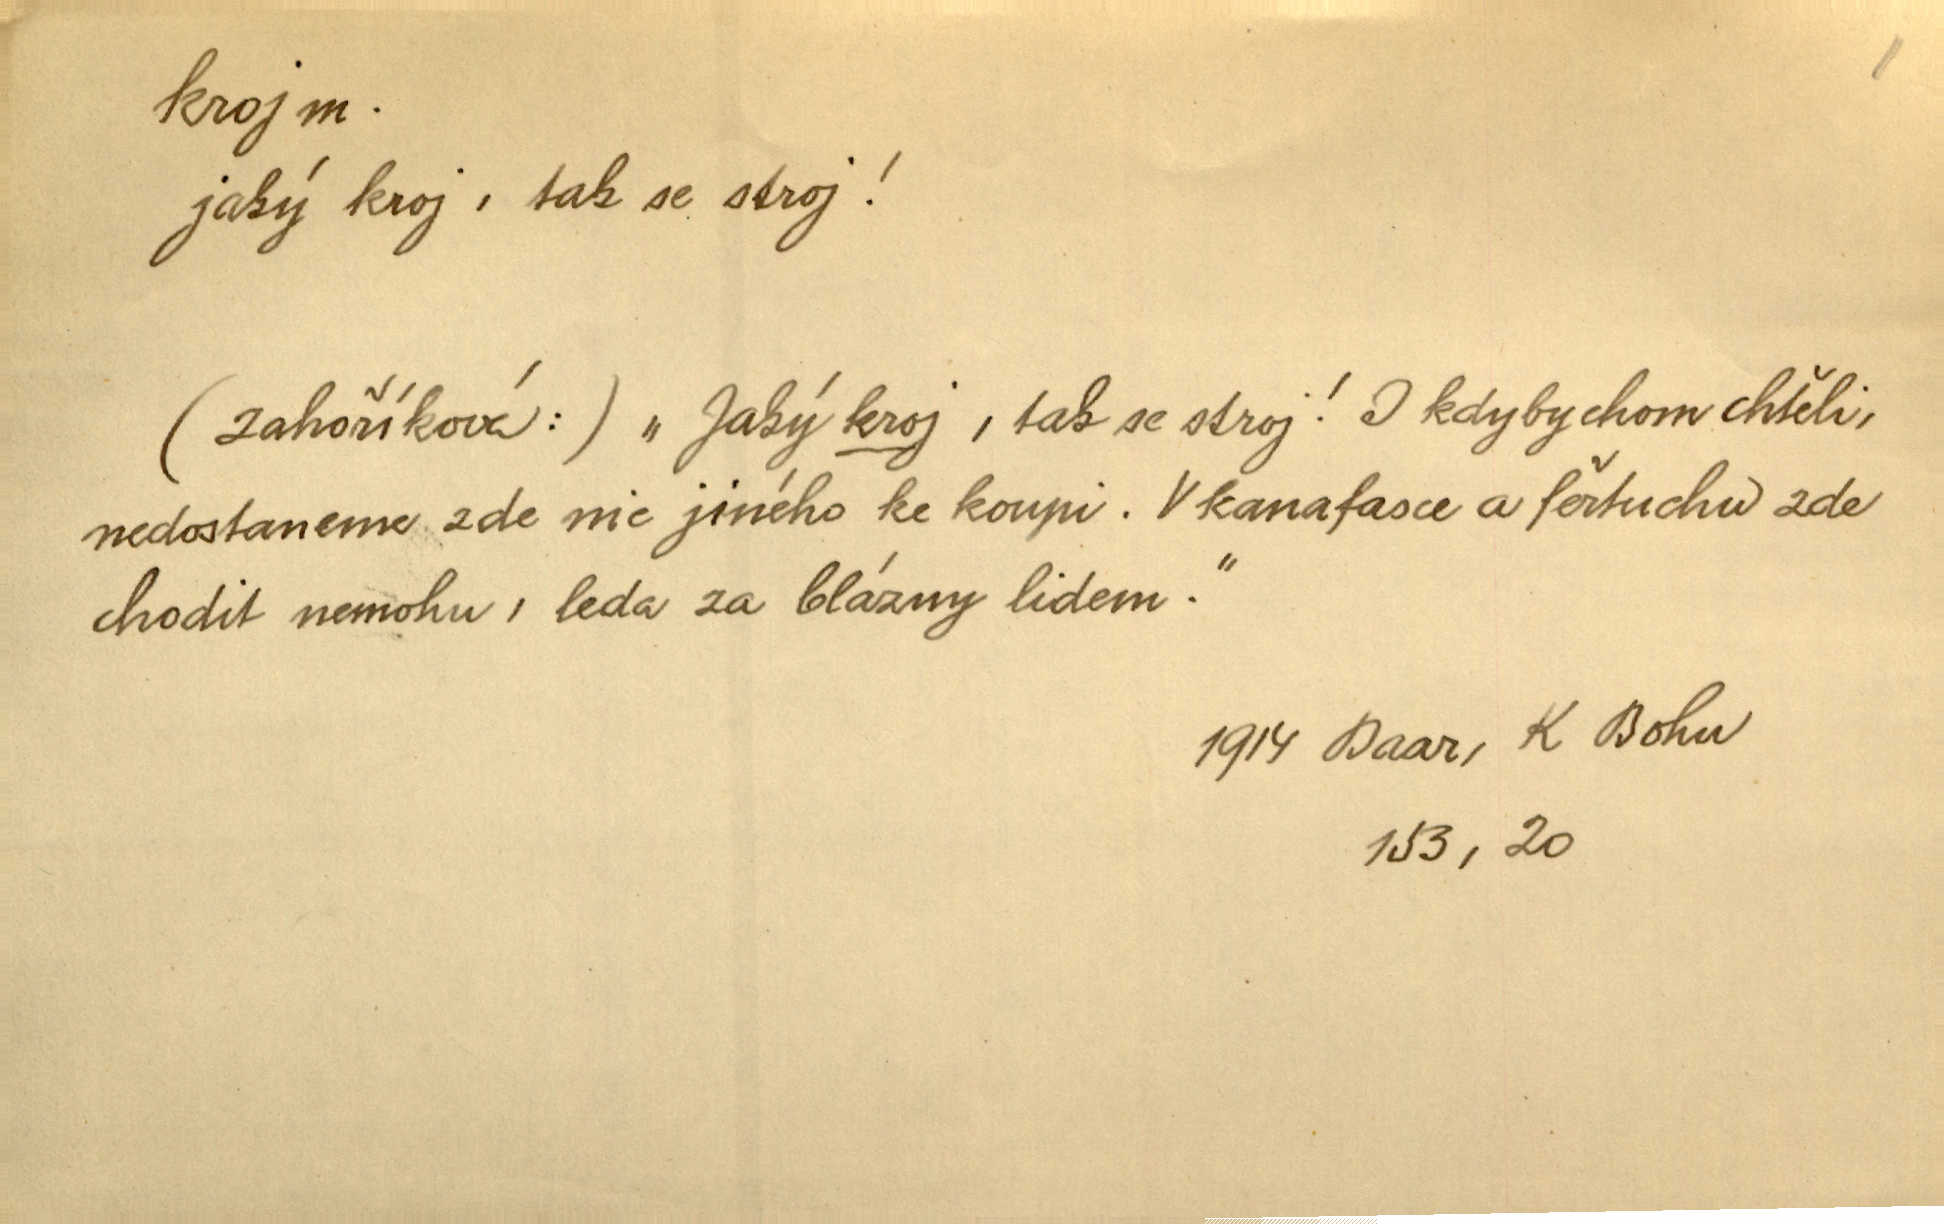 kroj m.
jaký kroj, tak se stroj!
(Zahoříková:) „Jaký kroj, tak se stroj! I kdybychom chtěli,
nedostaneme zde nic jiného ke koupi. V kanafasce a fěrtuchu zde
chodit nemohu, leda za blázny lidem."
1914 Baar, K Bohu
153, 20